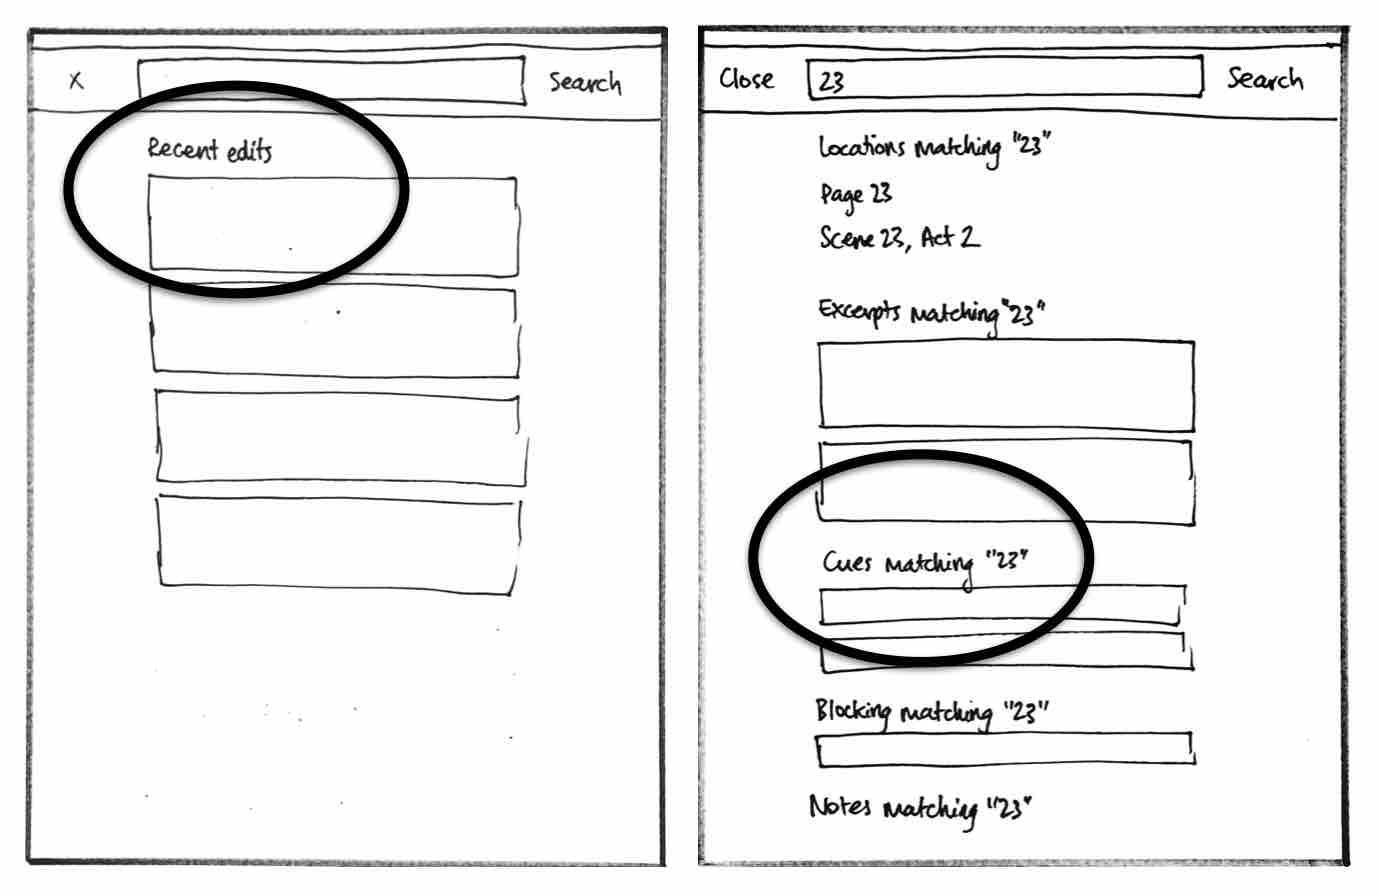 X Search
Recent edits
Close 23 Search
Locations matching "23"
Page 23
Scene 23, Act 2
Excerpts matching "23"
Cues matching "23"
Blocking matching "23"
Notes matching "23"